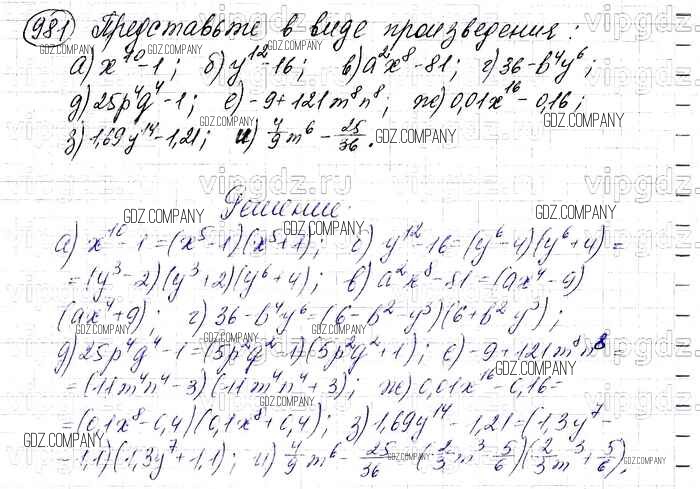 981 Представьте в виде произведения:
а) x¹⁰-1; б) y¹²-16; в) a²x⁸-81; г) 36-b⁴y⁶;
д) 25p⁴q⁴-1; е) -9+121m⁸n⁸; ж) 0,01x¹⁶-0,16;
з) 1,69y¹⁴-1,21; и) 4/9 m⁶ - 25/36.
Решение.
а) x¹⁰-1=(x⁵-1)(x⁵+1); б) y¹²-16=(y⁶-4)(y⁶+4)=
=(y³-2)(y³+2)(y⁶+4); в) a²x⁸-81=(ax⁴-9)
(ax⁴+9); г) 36-b⁴y⁶=(6-b²y³)(6+b²y³);
д) 25p⁴q⁴-1=(5p²q²-1)(5p²q²+1); е) -9+121m⁸n⁸=
=(11m⁴n⁴-3)(11m⁴n⁴+3); ж) 0,01x¹⁶-0,16=
=(0,1x⁸-0,4)(0,1x⁸+0,4); з) 1,69y¹⁴-1,21=(1,3y⁷-
-1,1)(1,3y⁷+1,1); и) 4/9 m⁶ - 25/36 = (2/3 m³ - 5/6)(2/3 m³ + 5/6).
GDZ.COMPANY
vipgdz.ru